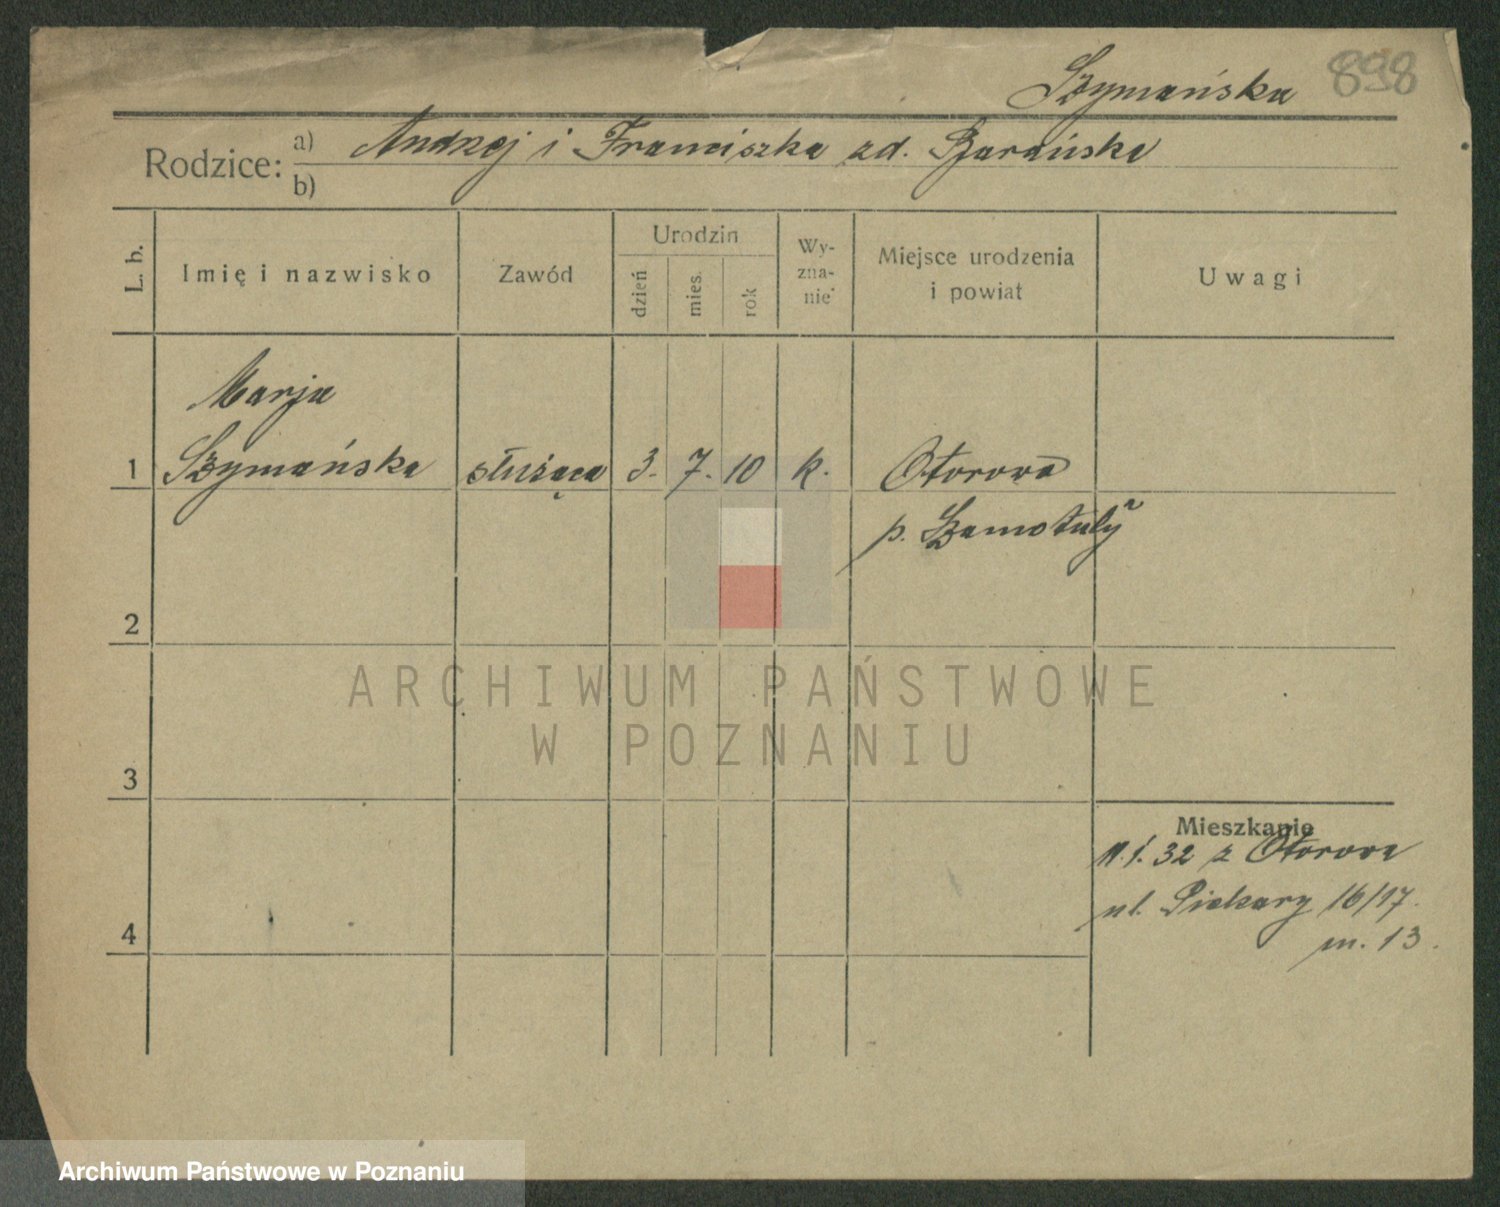 Szymańska 898
Rodzice: a) Andrzej i Franciszka zd. Barańska
b)
L. b. Imię i nazwisko Zawód Urodzin dzień mies. rok Wy-zna-nie Miejsce urodzenia i powiat Uwagi
Marja
1 Szymańska służąca 3. 7. 10 k. Otorowo
p. Szamotuły
2
ARCHIWUM PAŃSTWOWE
W POZNANIU
3
Mieszkanie
11.1.32 z Otorowa
ul. Piekary 16/17.
4
m. 13.
Archiwum Państwowe w Poznaniu